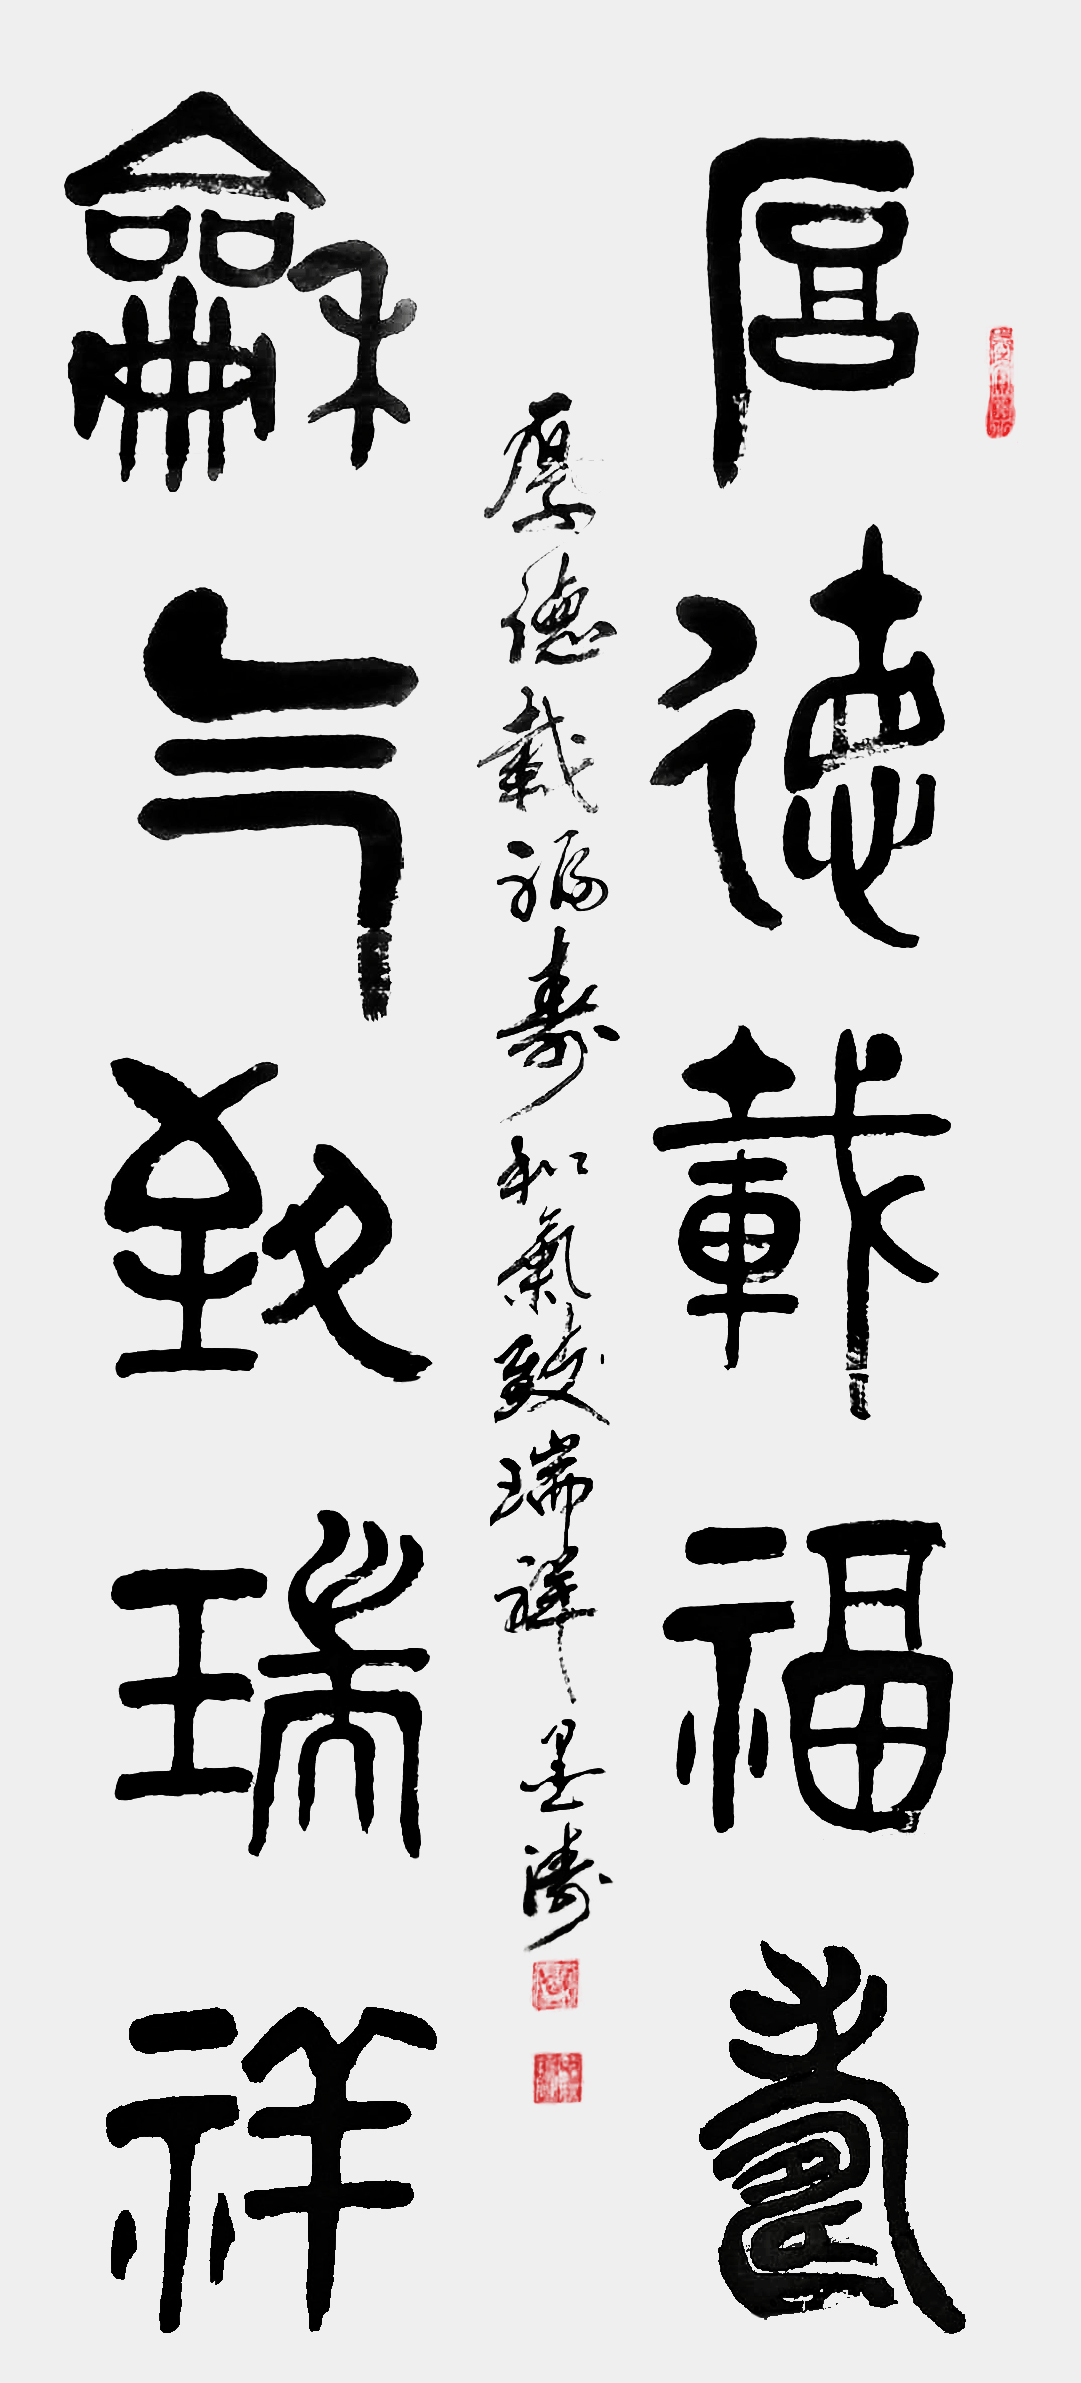 厚德載福壽
厚德載福壽和氣致瑞祥 墨濤
龢气致瑞祥